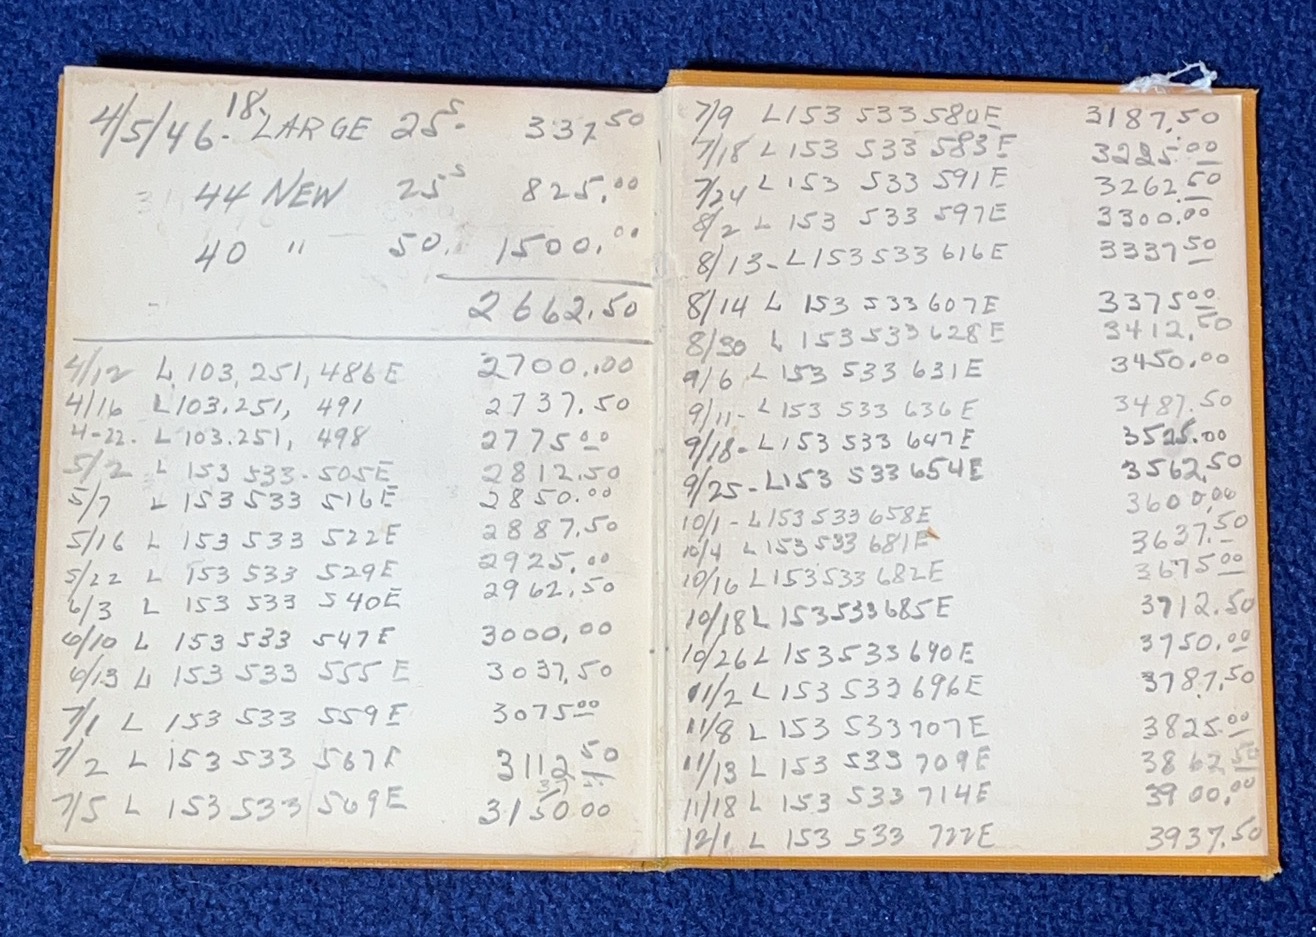 4/5/46 - 18 LARGE 25s. 337 50
44 NEW 25s 825.00
40 " 50. 1500.00
2662.50
4/12 L 103,251,486E 2700.00
4/16 L103.251, 491 2737.50
4-22. L 103.251, 498 2775 00
5/2 L 153 533-505E 2812.50
5/7 L 153 533 516E 2850.00
5/16 L 153 533 522E 2887.50
5/22 L 153 533 529E 2925.00
6/3 L 153 533 540E 2962.50
6/10 L 153 533 547E 3000.00
6/13 L 153 533 555E 3037.50
7/1 L 153 533 559E 3075 00
7/2 L 153 533 567E 3112 50
7/5 L 153 533 569E 3150.00
7/9 L153 533580E 3187.50
7/18 L 153 533 583E 3225.00
7/24 L 153 533 591E 3262.50
8/2 L 153 533 597E 3300.00
8/13 - L153533616E 3337 50
8/14 L 153 533607E 3375 00
8/30 L 153533628E 3412.50
9/6 L 153 533 631E 3450.00
9/11 - L153 533 636E 3487.50
9/18 - L153 533 647E 3525.00
9/25 - L153 533 654E 3562.50
10/1 - L153533658E 3600.00
10/4 L 153533 681E 3637.50
10/16 L153533682E 3675 00
10/18 L 153533685E 3712.50
10/26 L 153533690E 3750.00
11/2 L 153 533 696E 3787.50
11/8 L 153 533707E 3825.00
11/13 L 153 533 709E 3862 50
11/18 L 153 533 714E 3900.00
12/1 L 153 533 722E 3937.50